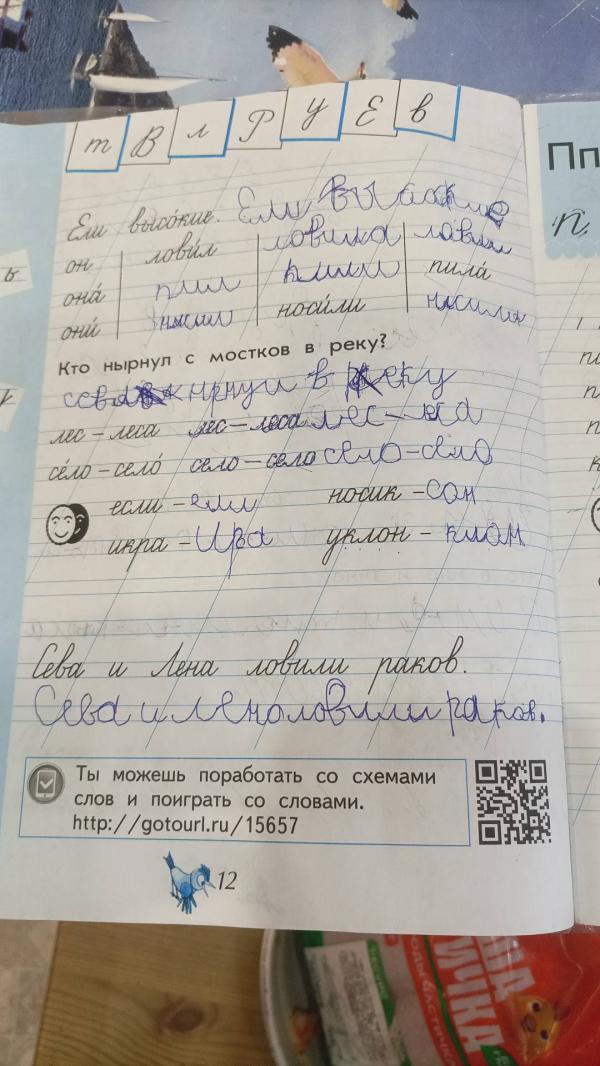 т В л Р у Е в
Ели высо́кие. Ели высокие
он лови́л ловила ловили
она́ пил пили пила́
они́ носи́ли носили
Кто нырнул с мостков в реку?
в реку
лес – леса лес – леса лес –
се́ло – село́ село – село село – село
если – ели носик – сон
икра – Ира уклон – клон
Сева и Лена ловили раков.
Сева и Лена ловили раков.
Ты можешь поработать со схемами
слов и поиграть со словами.
http://gotourl.ru/15657
12
Пп
п